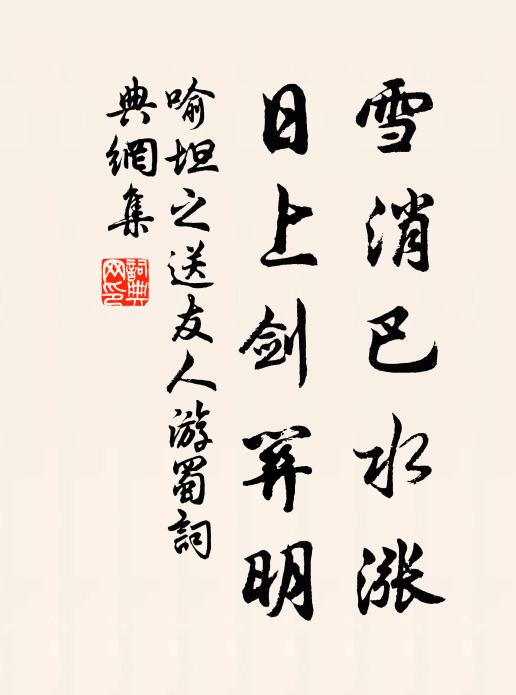 雪消巴水涨
日上剑关明
喻坦之送友人游蜀詞
典網集
詞典
网印